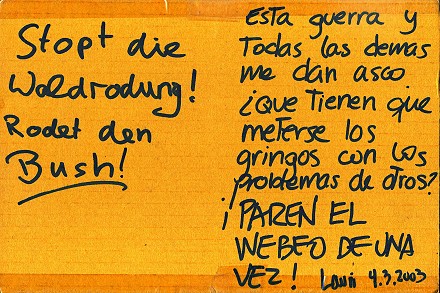 Stopt die
Waldrodung!
Rodet den
Bush!
Esta guerra y
Todas las demas
me dan asco
¿que tienen que
meterse los
gringos con los
problemas de otros?
¡PAREN EL
WEBEO DE UNA
VEZ! Lauri 4.3.2003